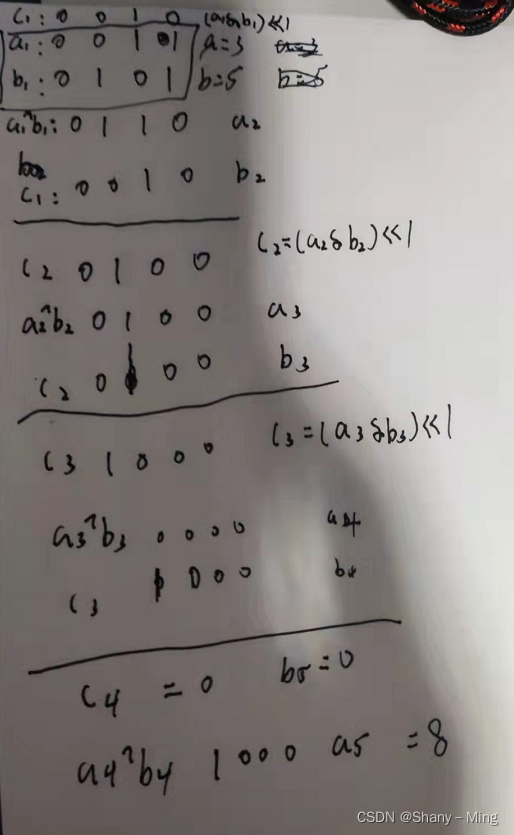 C₁: 0 0 1 0 (a₁&b₁)≪1
a₁: 0 0 1 1 a=3 a=3
b₁: 0 1 0 1 b=5 b=5
a₁^b₁: 0 1 1 0 a₂
C₁: 0 0 1 0 b₂
C₂ 0 1 0 0 C₂=(a₂&b₂)≪1
a₂^b₂ 0 1 0 0 a₃
C₂ 0 1 0 0 b₃
C₃ 1 0 0 0 C₃=(a₃&b₃)≪1
a₃^b₃ 0 0 0 0 a₄
C₃ 1 0 0 0 b₄
C₄ = 0 b₅=0
a₄^b₄ 1 0 0 0 a₅ = 8
CSDN @Shany – Ming